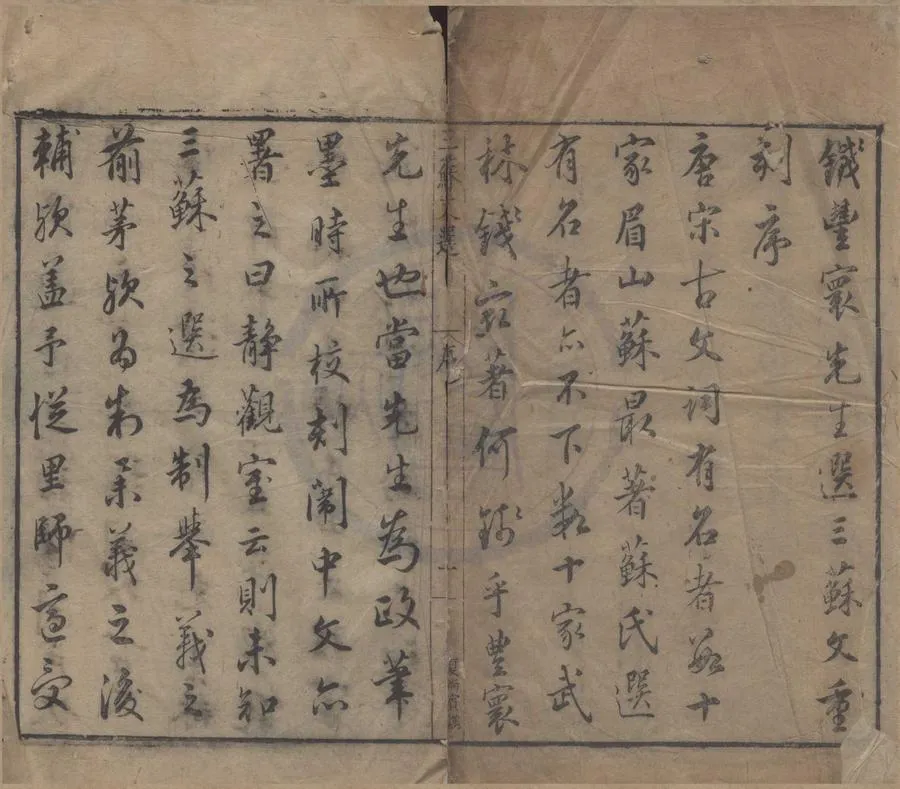 錢豐寰先生選三蘇文重
刻序
唐宋古文詞有名者數十
家眉山蘇最著蘇氏選
有名者亦不下數十家武
林錢最著何錢乎豊寰
三蘇文選
序
一
先生也當先生為政筆
墨時所校刻闈中文亦
署之曰靜觀室云則未知
三蘇之選為制舉義之
前茅歟為制舉義之後
輔歟盖予從里師選受